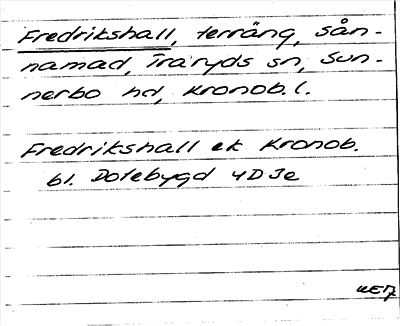 Fredrikshall, terräng, sån-
namad, Traryds sn, Sun-
nerbo hd, Kronob. l.
Fredrikshall ek Kronob.
bl. Dotebygd 4D3e